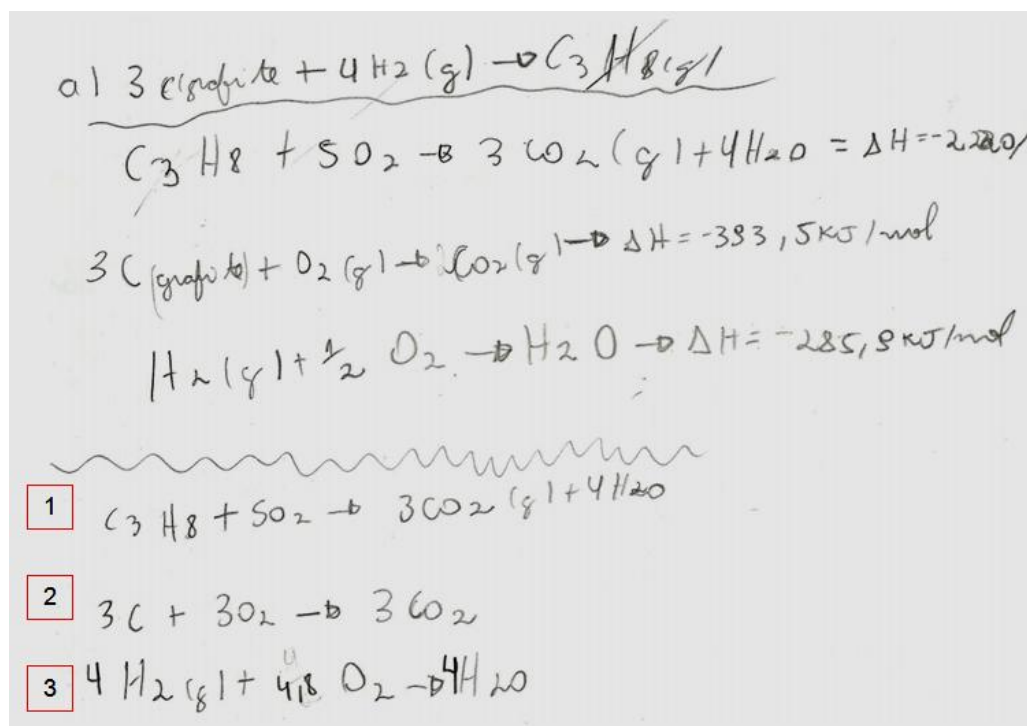 a) 3 C(grafite + 4 H2 (g) → C3H8(g)
C3 H8 + 5O2 → 3 CO2 (g) + 4H2O = ΔH=-2220/
3 C (grafite) + O2 (g) → CO2 (g) → ΔH = -393,5KJ/mol
H2 (g) + 1/2 O2 → H2O → ΔH = -285,8 KJ/mol
1 C3 H8 + 5O2 → 3CO2 (g) + 4H2O
2 3C + 3O2 → 3CO2
3 4 H2 (g) + O2 → 4H2O